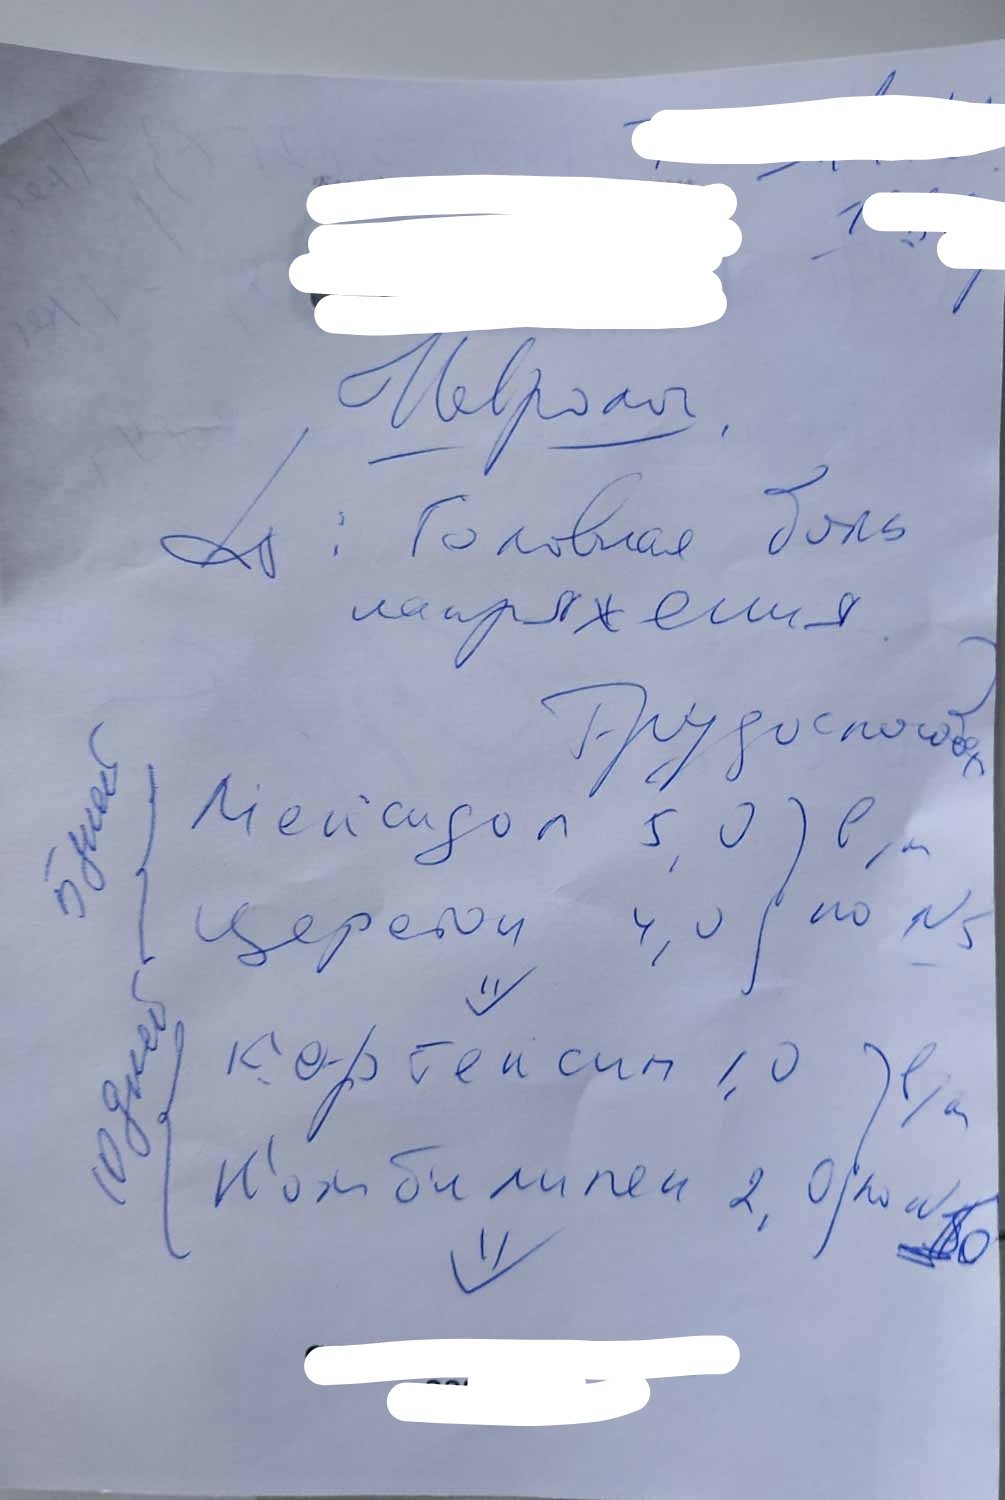 Невролог.
Ds: Головная боль
напряжения.
Трудоспособен
5 дней
Мексидол 5,0 в/м
Церетон 4,0 по N5
⇓
10 дней
Кортексин 1,0 в/м
Комбилипен 2,0 по N10
⇓